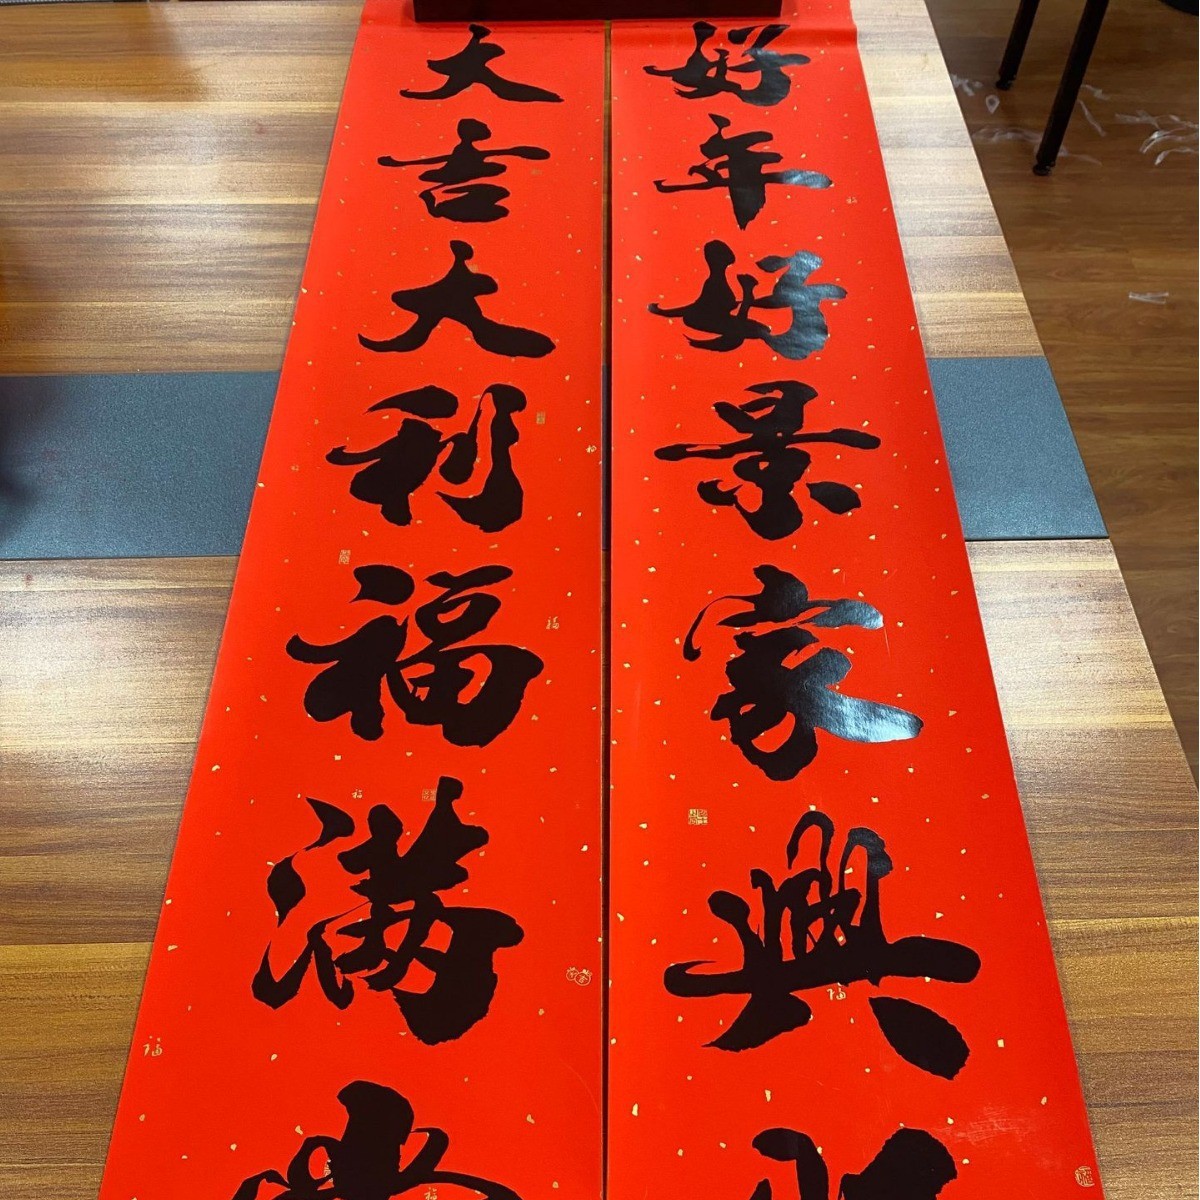 好年好景家興
大吉大利福满